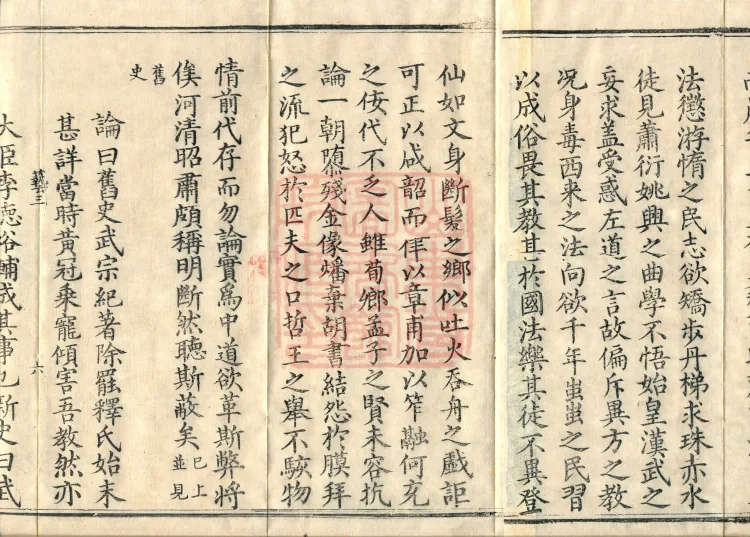 法懲游惰之民志欲矯步丹梯求珠亦水
徒見蕭衍姚興之曲學不悟始皇漢武之
妄求蓋受惑左道之言故偏斥異方之教
况身毒西来之法向欲千年蚩蚩之民習
以成俗畏其教甚於國法樂其徒不異登
仙如文身斷髮之鄉似吐火吞舟之戲詎
可正以咸韶而律以章甫加以笮融何充
之佞代不乏人雖荀鄉孟子之賢未容抗
論一朝隳殘金像蟠棄胡書結怨於膜拜
之流犯怒於匹夫之口哲王之舉不駭物
情前代存而勿論實爲中道欲革斯弊將
俟河清昭肅頗稱明斷然聽斯蔽矣已上並見
舊史
論曰舊史武宗紀著除罷釋氏始末
甚詳當時黃冠乘寵傾害吾教然亦
六
大臣李德裕輔成其事也新史曰武